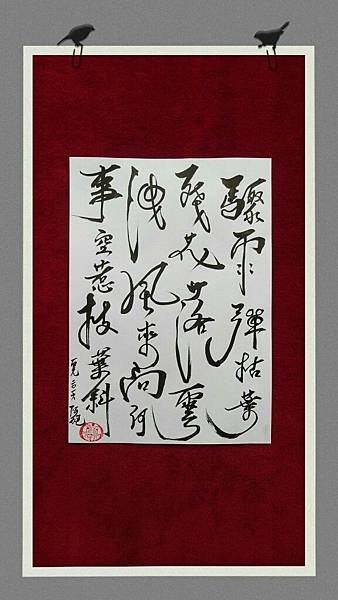 驟雨彈枯葉
殘花落雲
風來問何
事空惹枝葉斜